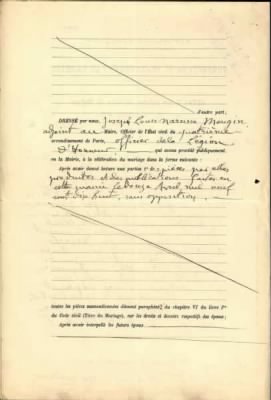 d'autre part;
DRESSÉ par nous, Joseph Louis Narcisse Mongin
adjoint au Maire, Officier de l'État civil du quatrième
arrondissement de Paris, officier de la Légion
d'Honneur qui avons procédé publiquement,
en la Mairie, à la célébration du mariage dans la forme suivante :
Après avoir donné lecture aux parties 1° des pièces par elles
produites et des publications faites en
cette mairie le douze Avril mil neuf
cent dix huit, sans opposition.
toutes les pièces susmentionnées dûment paraphées; 2° du chapitre VI du livre Ier
du Code civil (Titre du Mariage), sur les droits et devoirs respectifs des époux;
Après avoir interpellé les futurs époux